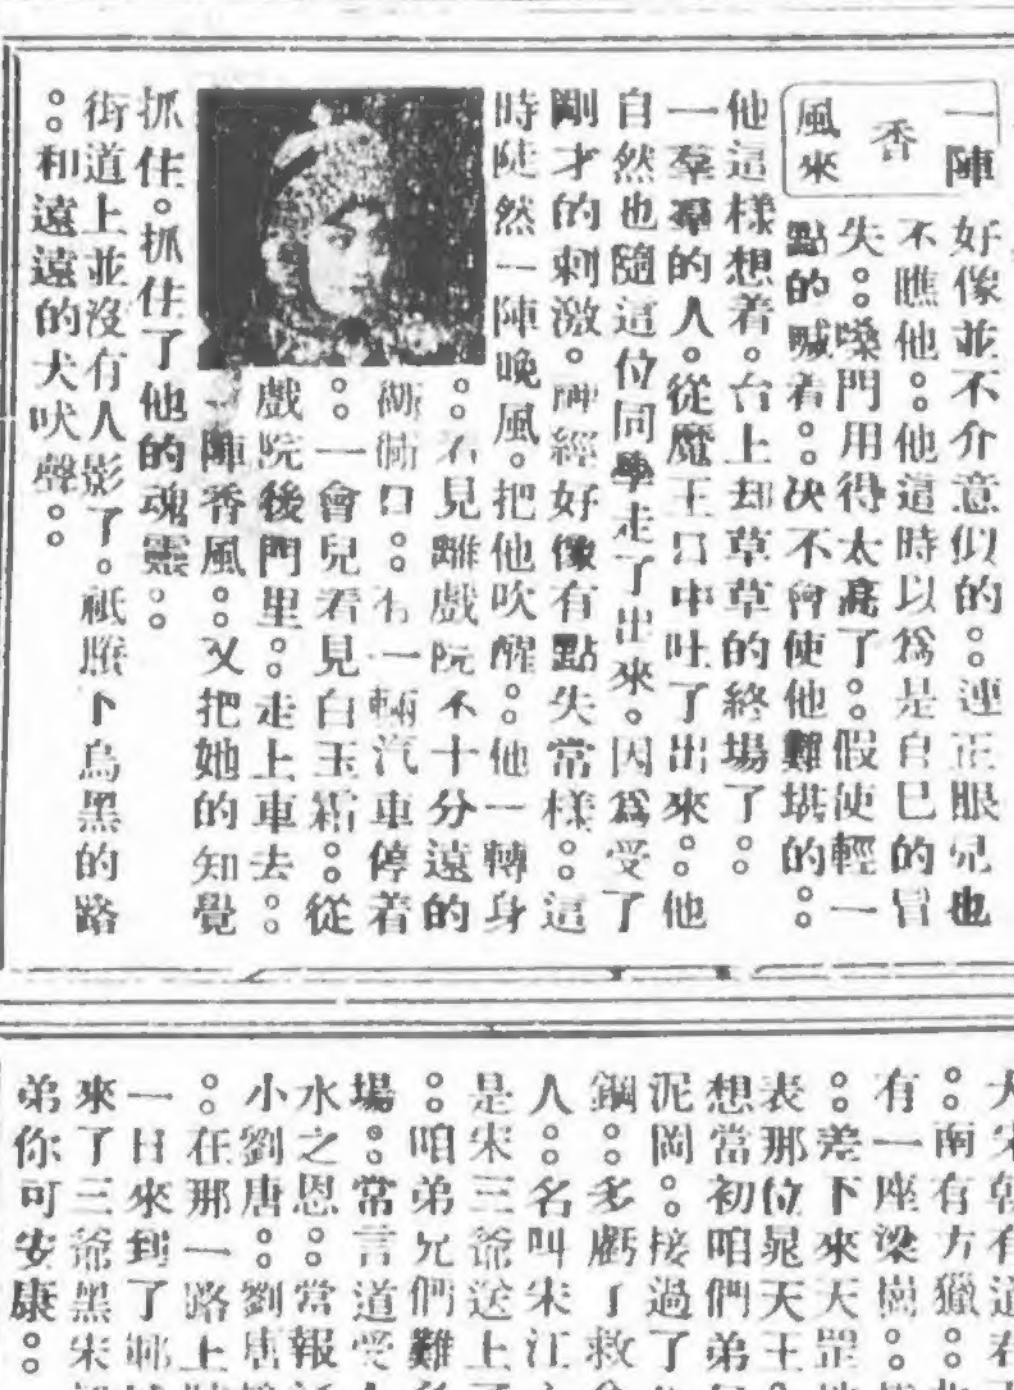 一陣
香
風來
好像並不介意似的。。連正眼兒也
不瞧他。。他這時以爲是自巳的冒
失。。嗓門用得太高了。。假使輕一
點的喊着。。决不會使他難堪的。。
他這樣想着。台上却草草的終場了。。
一羣羣的人。從魔王口中吐了出來。。他
自然也隨這位同學走了出來。因爲受了
剛才的刺激。神經好像有點失常樣。。這
時陡然一陣晚風。把他吹醒。。他一轉身
。。看見離戲院不十分遠的
衚衕口。。有一輛汽車停着
。。一會兒看見白玉霜。。從
戲院後門里。。走上車去。。
一陣香風。。又把她的知覺
抓住。抓住了他的魂靈。。
街道上並沒有人影了。祇賸下烏黑的路
。。和遠遠的犬吠聲。。
大宋朝有道君
。。南有方獵。。
有一座梁崗。。
。。差下來天罡
表那位晁天王
想當初咱們弟
泥岡。。接過了
鋼。。多虧了救
人。。名叫宋江
是宋三爺送上
。。咱弟兄們難
場。。常言道受
水之恩。。常報
小劉唐。。劉唐
。。在那一路上
一日來到了鄆
來了三爺黑宋
弟你可安康。。